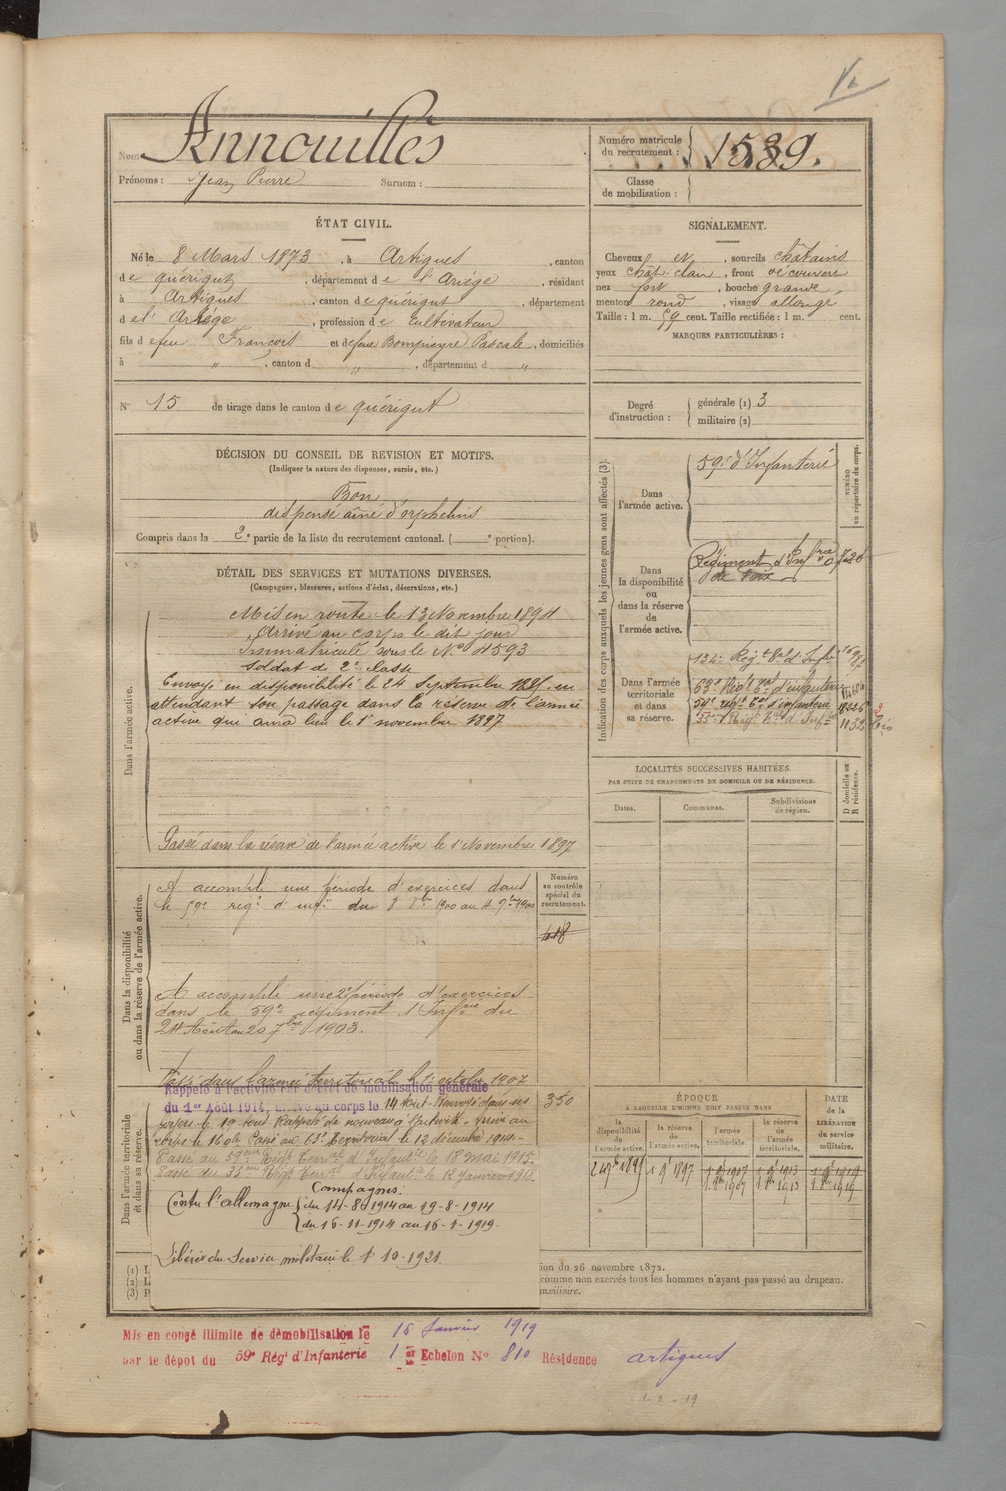 Nom Annouillès
Prénoms : Jean Pierre Surnom :
Numéro matricule du recrutement : 1539.
Classe de mobilisation :
ÉTAT CIVIL.
Né le 8 Mars 1873, à Artigues, canton
de quérigut, département de l'Ariège, résidant
à Artigues, canton de quérigut, département
de l'Ariège, profession de cultivateur
fils de feu François et de feue Bompieyre Pascale, domiciliés
à " , canton d " , département d "
N° 15 de tirage dans le canton de quérigut
SIGNALEMENT.
Cheveux et , sourcils châtains
yeux chât. clair, front découvert
nez fort, bouche grande,
menton rond, visage allongé
Taille : 1 m. 59 cent. Taille rectifiée : 1 m. cent.
MARQUES PARTICULIÈRES :
Degré d'instruction : générale (1) 3
militaire (2)
DÉCISION DU CONSEIL DE REVISION ET MOTIFS.
(Indiquer la nature des dispenses, sursis, etc.)
Bon
dispensé aîné d'orphelins
Compris dans la 2e partie de la liste du recrutement cantonal. ( e portion).
DÉTAIL DES SERVICES ET MUTATIONS DIVERSES.
(Campagnes, blessures, actions d'éclat, décorations, etc.)
Dans l'armée active.
Mis en route le 13 Novembre 1894
Arrivé au corps le dit jour
Immatriculé sous le No 4593
Soldat de 2e classe
Envoyé en disponibilité le 24 Septembre 1895 en
attendant son passage dans la réserve de l'armée
active qui aura lieu le 1er novembre 1897
Passé dans la réserve de l'armée active le 1er Novembre 1897
Indication des corps auxquels les jeunes gens sont affectés (3).
NUMÉRO au répertoire du corps.
Dans l'armée active.
59e d'Infanterie
Dans la disponibilité ou dans la réserve de l'armée active.
Régiment d'Infrie
de Foix
Dans l'armée territoriale et dans sa réserve.
134e Régt tal d'Infie
63e Régt tal d'infanterie
59e régt tal d'infanterie
55e Régt tal d'Infie 1132
LOCALITÉS SUCCESSIVES HABITÉES
PAR SUITE DE CHANGEMENTS DE DOMICILE OU DE RÉSIDENCE.
Dates. Communes. Subdivisions de région. D domicile ou R résidence.
Dans la disponibilité ou dans la réserve de l'armée active.
Numéro au contrôle spécial du recrutement.
A accompli une période d'exercices dans
le 59e régt d'infie du 8 8bre 1900 au 4 9bre 1900
418
A accompli une 2e période d'exercices
dans le 59e régiment d'Infrie du
24 Août au 20 7bre 1903.
Passé dans l'armée territoriale le 1er octobre 1907
Dans l'armée territoriale et dans sa réserve.
Rappelé à l'activité par décret de mobilisation générale
du 1er Août 1914, arrivé au corps le 14 Août - Renvoyé dans ses
foyers le 19 août. Rappelé de nouveau à l'activité. Arrivé au
corps le 16 9b Passé au 63e Territorial le 12 décembre 1914.
Passé au 59eme Régt Terral d'Infantie le 18 mai 1915
Passé au 55 eme Régt Terral d'Infantie le 12 janvier 1918.
350
Campagnes.
Contre l'allemagne du 14-8-1914 au 19-8-1914
du 16-11-1914 au 16-1-1919.
Libéré du Service militaire le 1er 10-1921.
ÉPOQUE
A LAQUELLE L'HOMME DOIT PASSER DANS
DATE DE LA LIBÉRATION DU service militaire.
la disponibilité de l'armée active. la réserve de l'armée active. l'armée territoriale. la réserve de l'armée territoriale.
24 7bre 1895 1 9b 1897 1 9b 1907 1 9b 1913 1 9b 1919
1 8bre 1907 1 8bre 1913 1 8bre 1919
(1) L
(2) L
(3) P
ion du 26 novembre 1872.
comme non exercés tous les hommes n'ayant pas passé au drapeau.
auxiliaire.
Mis en congé illimité de démobilisation le 16 Janvier 1919
par le dépot du 59e Régt d'Infanterie 1er Echelon No 810 Résidence artigues